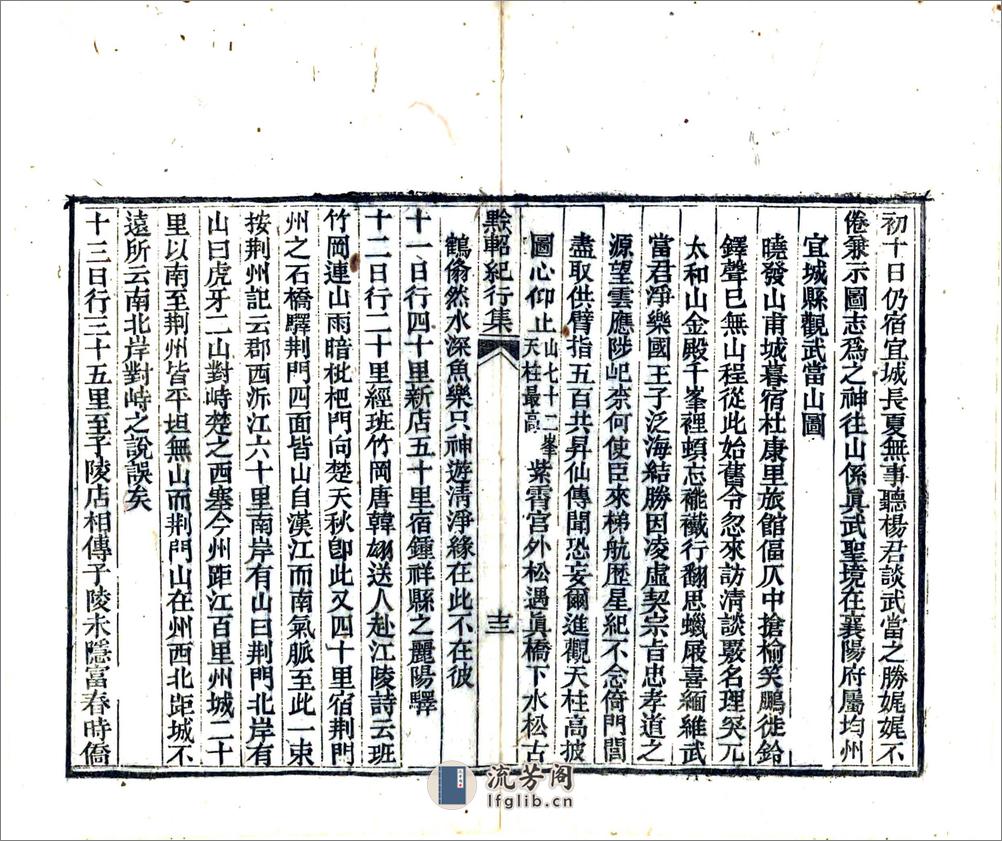 初十日仍宿宜城長夏無事聽楊君談武當之勝娓娓不
倦兼示圖志爲之神往山係眞武聖境在襄陽府屬均州
宜城縣觀武當山圖
曉發山甫城暮宿杜康里旅館傴仄中搶榆笑鵬徙鈴
鐸聲已無山程從此始舊令忽來訪清談覈名理突兀
太和山金殿千峯裡頓忘褦襶行翻思蠟屐喜緬維武
當君淨樂國王子泛海結勝因凌虛契宗旨忠孝道之
源望雲應陟屺柰何使臣來梯航歷星紀不念倚門閭
盡取供臂指五百共昇仙傳聞恐妄爾進觀天柱高披
圖心仰止山七十二峯天柱最高紫霄宮外松遇眞橋下水松古
黔軺紀行集
十三
鶴翛然水深魚樂只神遊清淨緣在此不在彼
十一日行四十里新店五十里宿鐘祥縣之麗陽驛
十二日行二十里經班竹岡唐韓翃送人赴江陵詩云班
竹岡連山雨暗枇杷門向楚天秋卽此又四十里宿荆門
州之石橋驛荆門四面皆山自漢江而南氣脈至此一束
按荆州記云郡西泝江六十里南岸有山曰荆門北岸有
山曰虎牙二山對峙楚之西塞今州距江百里州城二十
里以南至荆州皆平坦無山而荆門山在州西北距城不
遠所云南北岸對峙之說誤矣
十三日行三十五里至子陵店相傳子陵未隱富春時僑
流芳阁
lfglib.cn